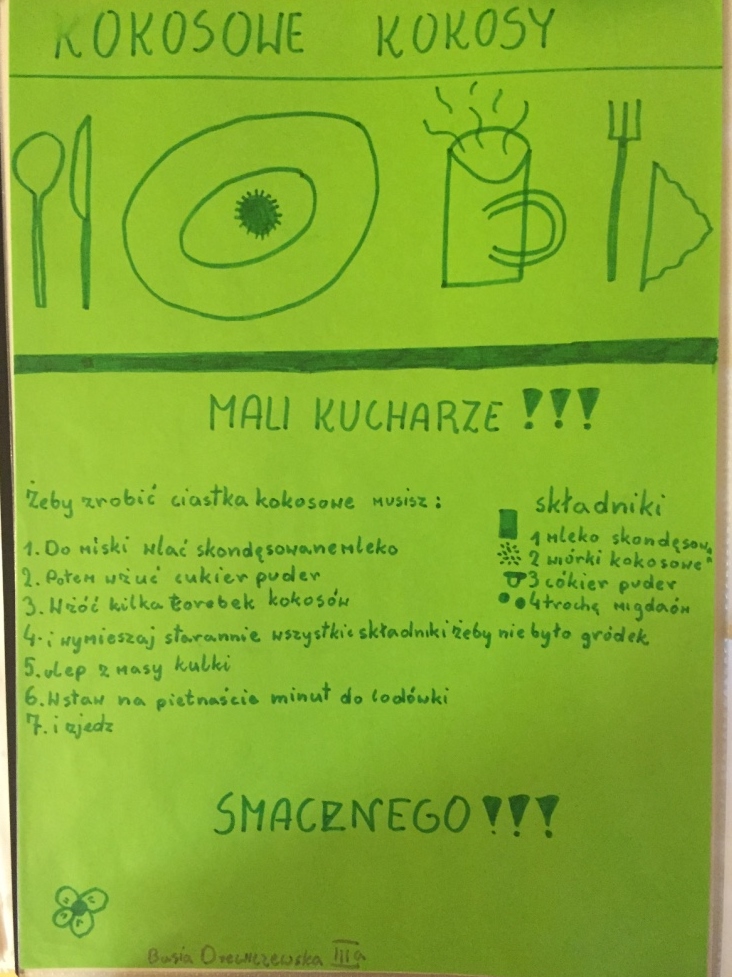 KOKOSOWE KOKOSY
MALI KUCHARZE !!!
Żeby zrobić ciastka kokosowe musisz:
1. Do miski wlać skondęsowane mleko
2. Potem wżuć cukier puder
3. Wżóć kilka torebek kokosów
4. i wymieszaj starannie wszystkie składniki żeby nie było gródek
5. ulep z masy kulki
6. Wstaw na pietnaście minut do lodówki
7. i zjedz
składniki
1 mleko skondęsow.
2 wiórki kokosowe"
3 cókier puder
4 trochę migdaów
SMACZNEGO !!!
Basia IIIa